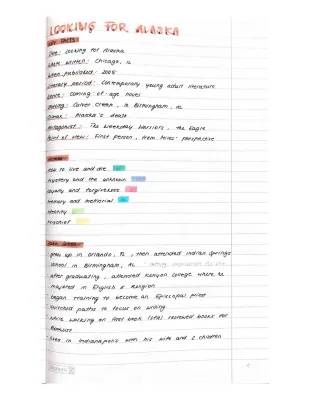 LOOKING FOR ALASKA
KEY FACTS
Title: Looking for Alaska
where written: Chicago, IL
when published: 2005
Literary period: Contemporary young adult literature
Genre: Coming-of-age novel
setting: Culver Creek, in Birmingham,
climax: Alaska's death
Antagonist: The Weekday Warriors, the Eagle
Point of view: First person, from Miles' perspective
how to live and die
mystery and the unknown
loyalty and forgiveness
memory and memorial
identity
mischief
John Green
grew up in Orlando, FL, then attended Indian Springs
school in Birmingham, AL
after graduating, attended Kenyon College where he
majored in English & Religion
began training to become an Episcopal priest
switched paths to focus on writing
while working on first book (LFA) reviewed books for
Booklist
lives in Indianapolis with his wife and 2 children